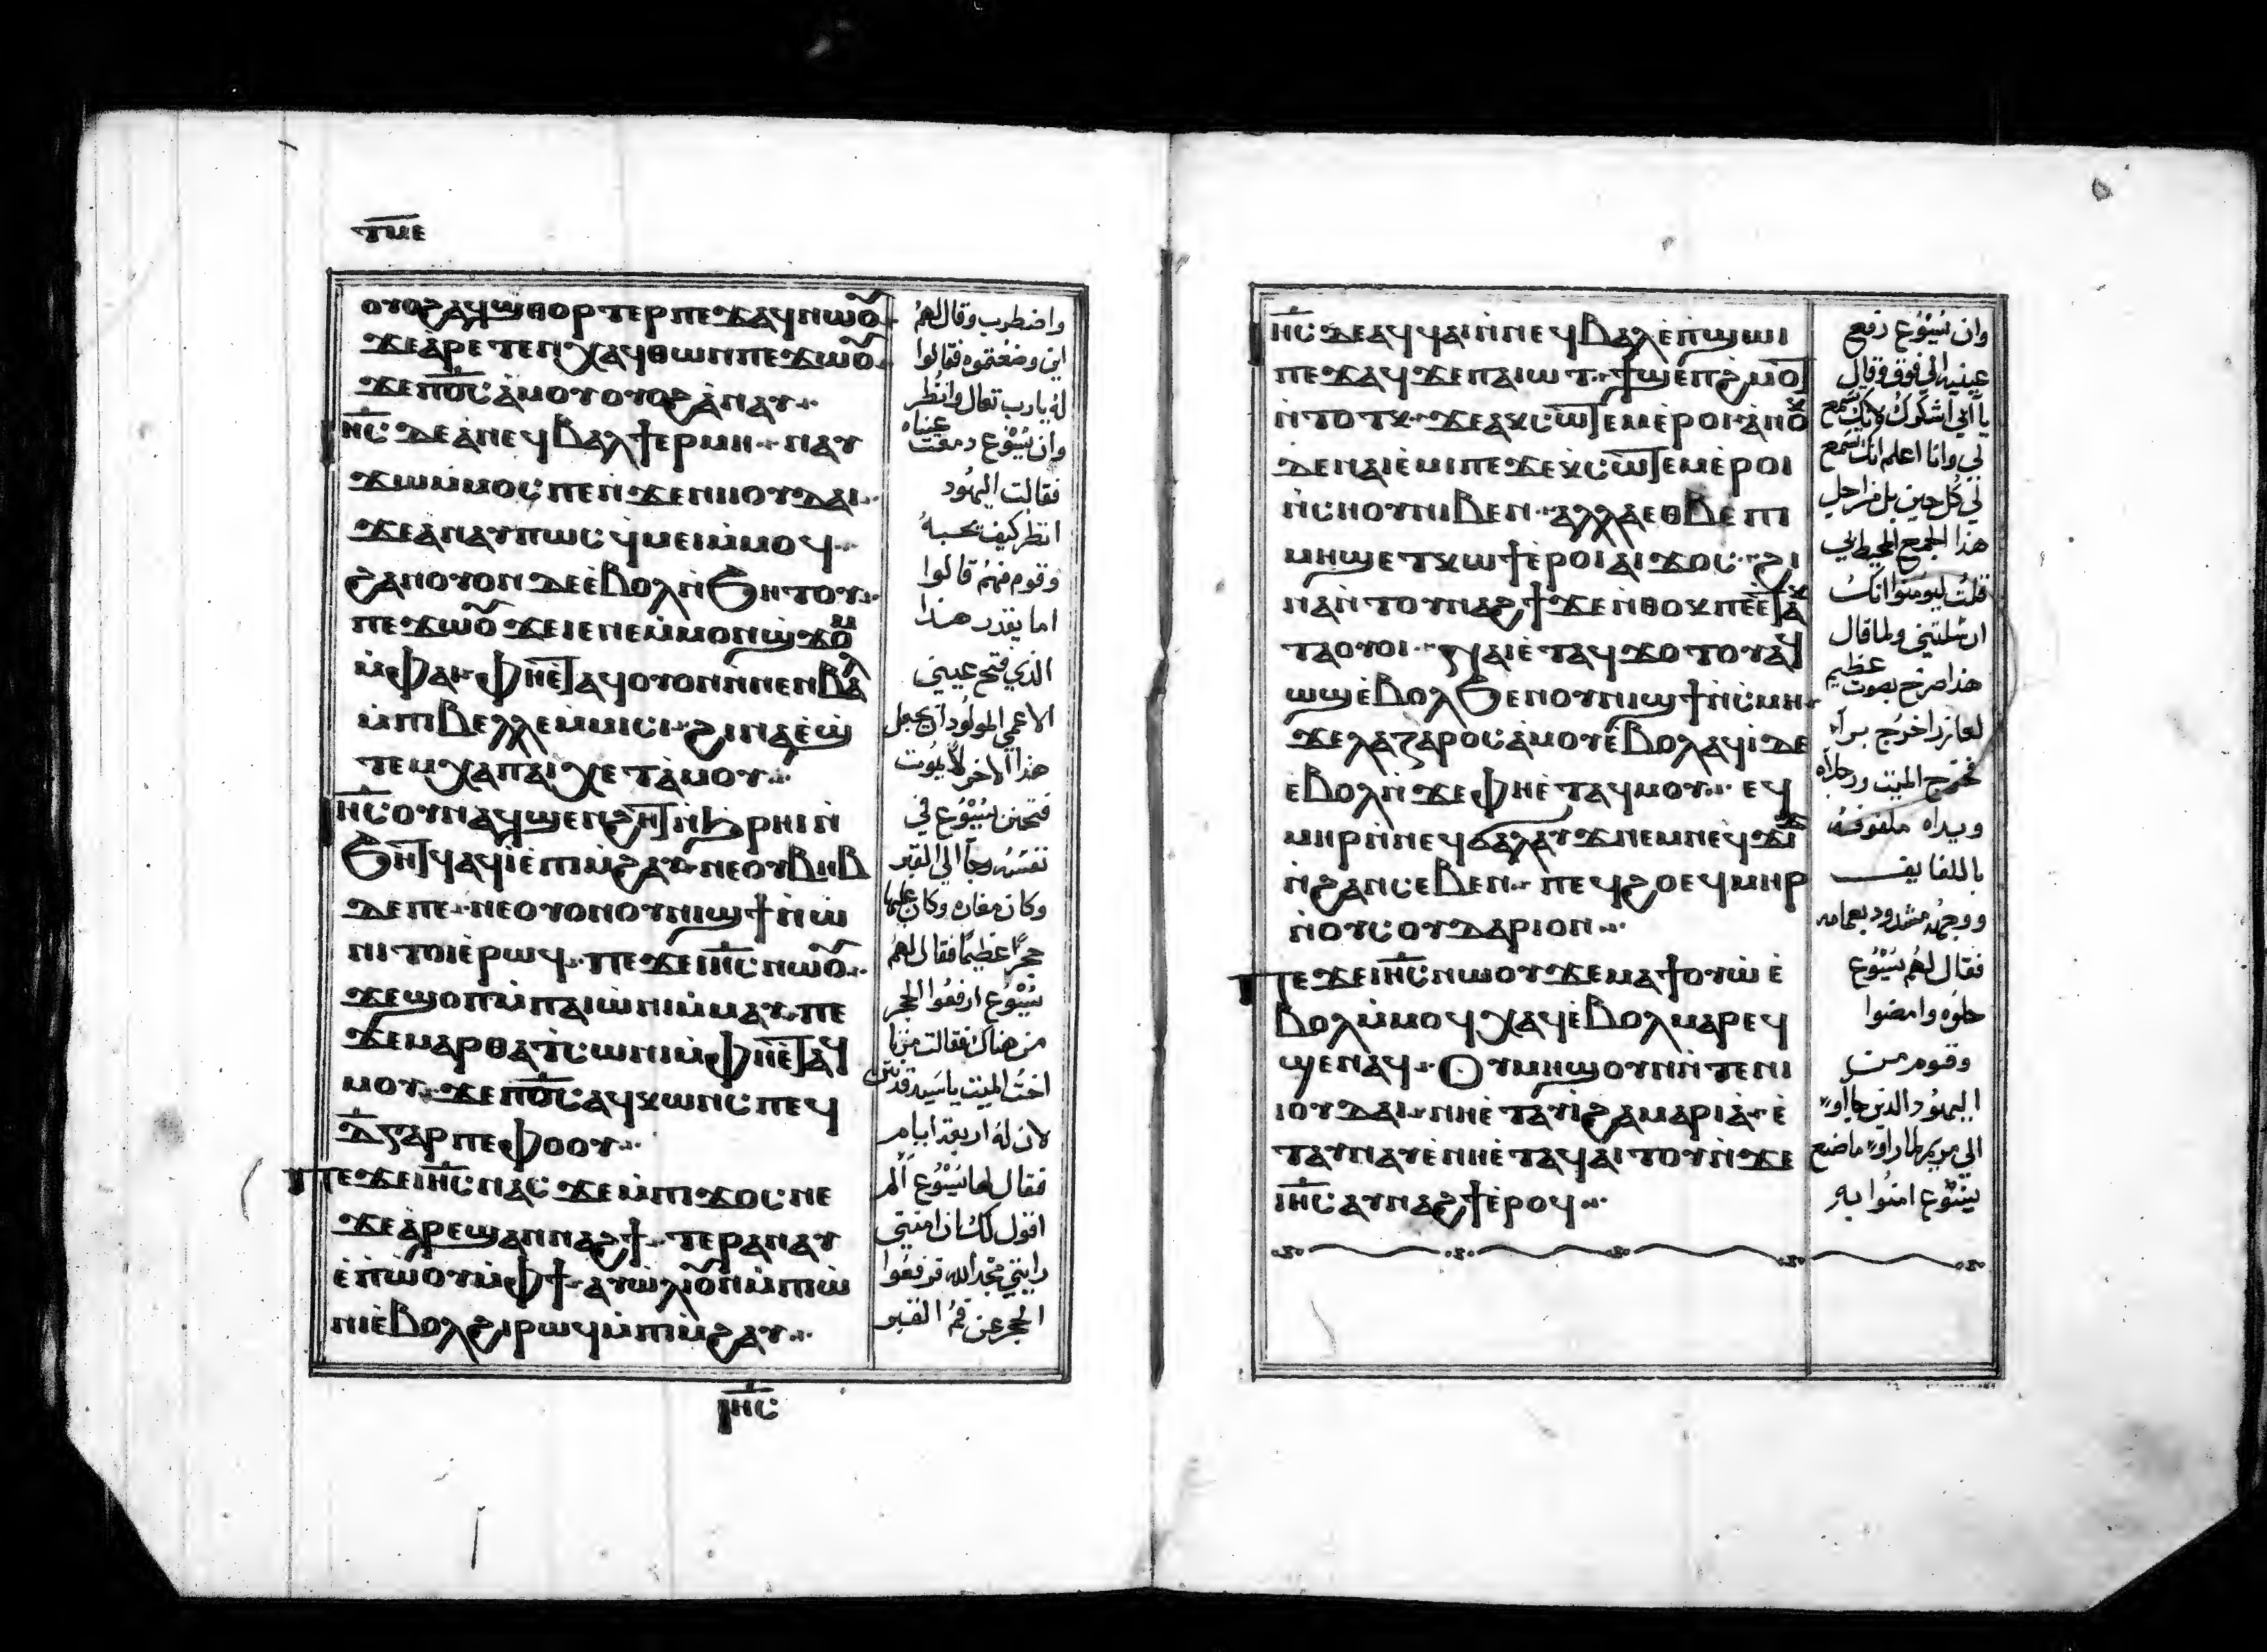 ⲧⲙⲉ
ⲟⲩⲟϩ ⲁϥϣⲑⲟⲣⲧⲉⲣ ⲡⲉϫⲁϥ ⲛⲱⲟⲩ
ϫⲉ ⲁ̀ⲣⲉⲧⲉⲛⲭⲁϥ ⲑⲱⲛ ⲡⲉϫⲱⲟⲩ
ϫⲉ ⲡⲟ̅ⲥ̅ ⲁ̀ⲙⲟⲩ ⲟⲩⲟϩ ⲁ̀ⲛⲁⲩ
ⲓⲏ̅ⲥ̅ ⲇⲉ ⲁ̀ⲛⲉϥⲃⲁⲗ ϯⲉⲣⲙⲏ ⲛⲁⲩ
ϫⲱ ⲙ̀ⲙⲟⲥ ⲡⲉ ⲛ̀ϫⲉ ⲛⲓⲓⲟⲩⲇⲁⲓ
ϫⲉ ⲁ̀ⲛⲁⲩ ⲡⲱⲥ ϥ̀ⲙⲉⲓ ⲙ̀ⲙⲟϥ
ϩⲁⲛⲟⲩⲟⲛ ⲇⲉ ⲉ̀ⲃⲟⲗ ⲛ̀ϧⲏⲧⲟⲩ
ⲡⲉϫⲱⲟⲩ ϫⲉ ⲓⲉ ⲛⲉ ⲙ̀ⲙⲟⲛ ϣ̀ϫⲟⲙ
ⲙ̀ⲫⲁⲓ ⲫⲏⲉ̀ⲧⲁϥⲟⲩⲟⲛ ⲛ̀ⲛⲉⲛⲃⲁⲗ
ⲙ̀ⲡⲓⲃⲉⲗⲗⲉ ⲙ̀ⲙⲓⲥⲓ ϩⲓⲛⲁ ⲉ̀ϣ
ⲧⲉⲙⲭⲁ ⲡⲁⲓⲭⲉⲧ ⲁ̀ⲙⲟⲩ
ⲓⲏ̅ⲥ̅ ⲟⲩⲛ ⲁϥϣⲉⲛϩⲏⲧ ⲛ̀ϧ̀ⲣⲏⲓ ⲛ̀
ϧⲏⲧϥ ⲁϥⲓ̀ ⲉ̀ⲡⲓⲙ̀ϩⲁⲩ ⲛⲉ ⲟⲩⲃⲏⲃ
ⲇⲉ ⲡⲉ ⲛⲉ ⲟⲩⲟⲛ ⲟⲩⲛⲓϣϯ ⲛ̀ⲱ̀
ⲛⲓ ⲧⲟⲓ ⲉ̀ⲣⲱϥ ⲡⲉϫⲉ ⲓⲏ̅ⲥ̅ ⲛⲱⲟⲩ
ϫⲉ ϣⲟⲡ ⲙ̀ⲡⲁⲓⲱ̀ⲛⲓ ⲙ̀ⲙⲁⲩ ⲡⲉ
ϫⲉ ⲙⲁⲣⲑⲁ ⲧ̀ⲥⲱⲛⲓ ⲙ̀ⲫⲏⲉ̀ⲧⲁϥ
ⲙⲟⲩ ϫⲉ ⲡⲟ̅ⲥ̅ ⲁϥⲭⲱⲛⲥ ⲡⲉϥ
ⲇ̅ ⲅⲁⲣ ⲡⲉ ⲫⲟⲟⲩ
ⲡⲉϫⲉ ⲓⲏ̅ⲥ̅ ⲛⲁⲥ ϫⲉ ⲙ̀ⲡⲓϫⲟⲥ ⲛⲉ
ϫⲉ ⲁ̀ⲣⲉϣⲁⲛⲛⲁϩϯ ⲧⲉⲣⲁⲛⲁⲩ
ⲉ̀ⲡ̀ⲱⲟⲩ ⲙ̀ⲫϯ ⲁⲩⲱ̀ⲗⲓ ⲟⲩⲛ ⲙ̀ⲡⲓⲱ̀
ⲛⲓ ⲉ̀ⲃⲟⲗ ϩⲓⲣⲱϥ ⲙ̀ⲡⲓⲙ̀ϩⲁⲩ
ⲓⲏ̅ⲥ̅
واضطرب وقال لهم
اين وضعتموه فقالوا
له يا رب تعال وانظر
وان يسوع دمعت عيناه
فقالت اليهود
انظر كيف يحبه
وقوم منهم قالوا
اما يقدر هذا
الذي فتح عيني
الاعمي المولود ان يجعل
هذا الاخر لا يموت
فتحنن يسوع في
نفسه وجا الي القبر
وكان مغاره وكان عليها
حجرا عظيما فقال لهم
يسوع ارفعوا الحجر
من هناك فقالت مرتا
اخت الميت يا سيد قد نتن
لان له اربعة ايام
فقال لها يسوع الم
اقول لك ان امنتي
رايتي مجد الله فرفعوا
الحجر عن فم القبر
ⲓⲏ̅ⲥ̅ ⲇⲉ ⲁϥϥⲁⲓ ⲛ̀ⲛⲉϥⲃⲁⲗ ⲉ̀ⲡ̀ϣⲱⲓ
ⲡⲉϫⲁϥ ϫⲉ ⲡⲁⲓⲱⲧ ϯϣⲉⲡϩ̀ⲙⲟⲧ
ⲛ̀ⲧⲟⲧⲕ ϫⲉ ⲁⲕⲥⲱⲧⲉⲙ ⲉ̀ⲣⲟⲓ ⲁ̀ⲛⲟⲕ
ⲇⲉ ⲛⲁⲓⲉ̀ⲙⲓ ⲡⲉ ϫⲉ ⲕ̀ⲥⲱⲧⲉⲙ ⲉ̀ⲣⲟⲓ
ⲛ̀ⲥⲛⲟⲩ ⲛⲓⲃⲉⲛ ⲁⲗⲗⲁ ⲉⲑⲃⲉ ⲡⲓ
ⲙⲏϣ ⲉⲧⲕⲱϯ ⲉ̀ⲣⲟⲓ ⲁⲓϫⲟⲥ ϩⲓ
ⲛⲁ ⲛ̀ⲧⲟⲩⲛⲁϩϯ ϫⲉ ⲛ̀ⲑⲟⲕ ⲡⲉⲧⲁⲕ
ⲧⲁⲟⲩⲟⲓ ⲛⲁⲓ ⲉ̀ⲧⲁϥϫⲟⲧⲟⲩ ⲁϥ
ⲱϣ ⲉ̀ⲃⲟⲗ ϧⲉⲛ ⲟⲩⲛⲓϣϯ ⲛ̀ⲥⲙⲏ
ϫⲉ ⲗⲁⲍⲁⲣⲟⲥ ⲁ̀ⲙⲟⲩ ⲉ̀ⲃⲟⲗ ⲁϥⲓ̀ ⲇⲉ
ⲉⲃⲟⲗ ⲛ̀ϫⲉ ⲫⲏⲉ̀ⲧⲁϥⲙⲟⲩ ⲉϥ
ⲙⲏⲣ ⲛ̀ⲛⲉϥϭⲁⲗⲁⲩϫ ⲛⲉⲙ ⲛⲉϥϫⲓϫ
ⲛ̀ϩⲁⲛⲥⲉⲃⲉⲛ ⲡⲉϥϩⲟ ⲉϥⲙⲏⲣ
ⲛ̀ⲟⲩⲥⲟⲩⲇⲁⲣⲓⲟⲛ
ⲡⲉϫⲉ ⲓⲏ̅ⲥ̅ ⲛⲱⲟⲩ ϫⲉ ⲙⲁϯⲟⲩⲱ̀ ⲉ̀
ⲃⲟⲗ ⲙ̀ⲙⲟϥ ⲭⲁϥ ⲉ̀ⲃⲟⲗ ⲙⲁⲣⲉϥ
ϣⲉⲛⲁϥ ⲟⲩⲙⲏϣ ⲟⲩⲛ ⲛ̀ⲧⲉ ⲛⲓ
ⲓⲟⲩⲇⲁⲓ ⲛⲏⲉ̀ⲧⲁⲩⲓ̀ ϩⲁ ⲙⲁⲣⲓⲁ ⲉ̀
ⲧⲁⲩⲛⲁⲩ ⲉ̀ⲛⲏⲉ̀ⲧⲁϥⲁⲓⲧⲟⲩ ⲛ̀ϫⲉ
ⲓⲏ̅ⲥ̅ ⲁⲩⲛⲁϩϯ ⲉ̀ⲣⲟϥ
وان يسوع رفع
عينيه الي فوق وقال
يا ابي اشكرك لانك تسمع
لي وانا اعلم انك تسمع
لي كل حين بل من اجل
هذا الجمع المحيط بي
قلت ليومنوا انك
ارسلتني ولما قال
هذا صرخ بصوت عظيم
لعازر اخرج برا
فخرج الميت ورجلاه
ويداه ملفوفه
باللفايف
ووجهه مشدود بعمامه
فقال لهم يسوع
حلوه وامضوا
وقوم من
اليهود الذين جاوا
الي مريم لما راوا ما صنع
يسوع امنوا به